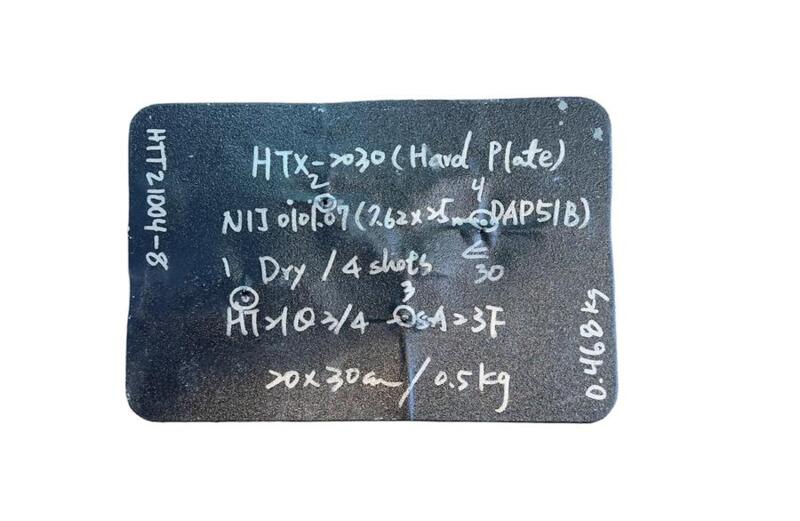 HTT21004-8
HTX-2030 (Hard Plate)
2
4
NIJ 0101.07 (7.62x25m DAP51B)
30
1 Dry / 4 shots
3
3/4 SA23F
20x30cm / 0.5kg
0.468kg